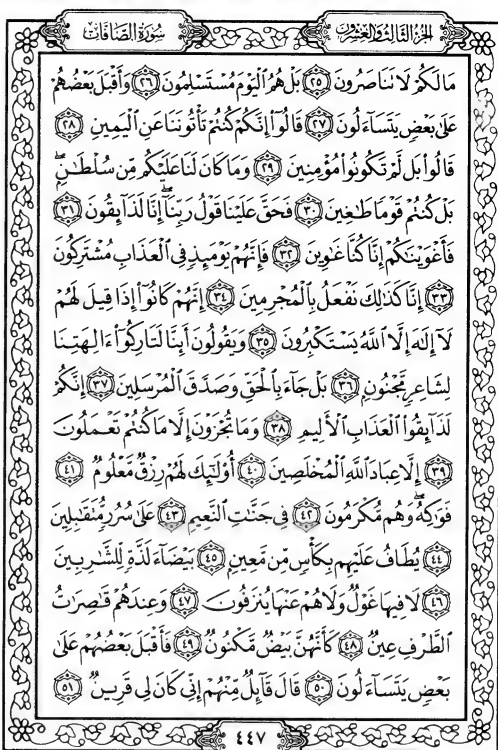 الجزء الثالث والعشرون سورة الصافات
مَا لَكُمْ لَا تَنَاصَرُونَ ٢٥ بَلْ هُمُ الْيَوْمَ مُسْتَسْلِمُونَ ٢٦ وَأَقْبَلَ بَعْضُهُمْ
عَلَىٰ بَعْضٍ يَتَسَاءَلُونَ ٢٧ قَالُوا إِنَّكُمْ كُنتُمْ تَأْتُونَنَا عَنِ الْيَمِينِ ٢٨
قَالُوا بَل لَّمْ تَكُونُوا مُؤْمِنِينَ ٢٩ وَمَا كَانَ لَنَا عَلَيْكُم مِّن سُلْطَٰنٍ ۖ
بَلْ كُنتُمْ قَوْمًا طَٰغِينَ ٣٠ فَحَقَّ عَلَيْنَا قَوْلُ رَبِّنَا ۖ إِنَّا لَذَائِقُونَ ٣١
فَأَغْوَيْنَٰكُمْ إِنَّا كُنَّا غَٰوِينَ ٣٢ فَإِنَّهُمْ يَوْمَئِذٍ فِي الْعَذَابِ مُشْتَرِكُونَ
٣٣ إِنَّا كَذَٰلِكَ نَفْعَلُ بِالْمُجْرِمِينَ ٣٤ إِنَّهُمْ كَانُوا إِذَا قِيلَ لَهُمْ
لَا إِلَٰهَ إِلَّا اللَّهُ يَسْتَكْبِرُونَ ٣٥ وَيَقُولُونَ أَئِنَّا لَتَارِكُوا ءَالِهَتِنَا
لِشَاعِرٍ مَّجْنُونٍ ٣٦ بَلْ جَاءَ بِالْحَقِّ وَصَدَّقَ الْمُرْسَلِينَ ٣٧ إِنَّكُمْ
لَذَائِقُوا الْعَذَابِ الْأَلِيمِ ٣٨ وَمَا تُجْزَوْنَ إِلَّا مَا كُنتُمْ تَعْمَلُونَ
٣٩ إِلَّا عِبَادَ اللَّهِ الْمُخْلَصِينَ ٤٠ أُولَٰئِكَ لَهُمْ رِزْقٌ مَّعْلُومٌ ٤١
فَوَٰكِهُ ۖ وَهُم مُّكْرَمُونَ ٤٢ فِي جَنَّٰتِ النَّعِيمِ ٤٣ عَلَىٰ سُرُرٍ مُّتَقَٰبِلِينَ
٤٤ يُطَافُ عَلَيْهِم بِكَأْسٍ مِّن مَّعِينٍ ٤٥ بَيْضَاءَ لَذَّةٍ لِّلشَّٰرِبِينَ
٤٦ لَا فِيهَا غَوْلٌ وَلَا هُمْ عَنْهَا يُنزَفُونَ ٤٧ وَعِندَهُمْ قَٰصِرَٰتُ
الطَّرْفِ عِينٌ ٤٨ كَأَنَّهُنَّ بَيْضٌ مَّكْنُونٌ ٤٩ فَأَقْبَلَ بَعْضُهُمْ عَلَىٰ
بَعْضٍ يَتَسَاءَلُونَ ٥٠ قَالَ قَائِلٌ مِّنْهُمْ إِنِّي كَانَ لِي قَرِينٌ ٥١
٤٤٧